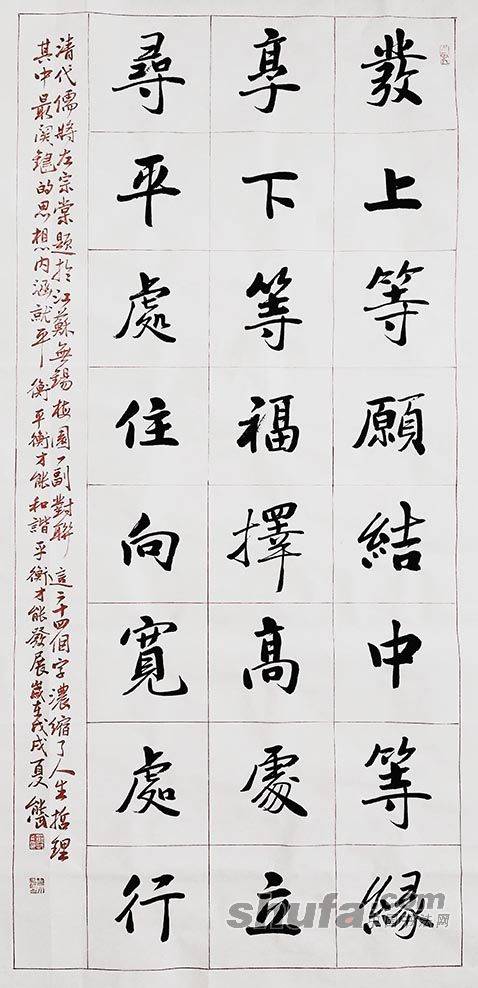 發上等願結中等緣
享下等福擇高處立
尋平處住向寬處行
清代儒將左宗棠題於江蘇無錫梅園一副對聯這二十四個字濃縮了人生哲理
其中最关鍵的思想内涵就平衡平衡才能和諧平衡才能發展歲在戊戌夏
shufa.com